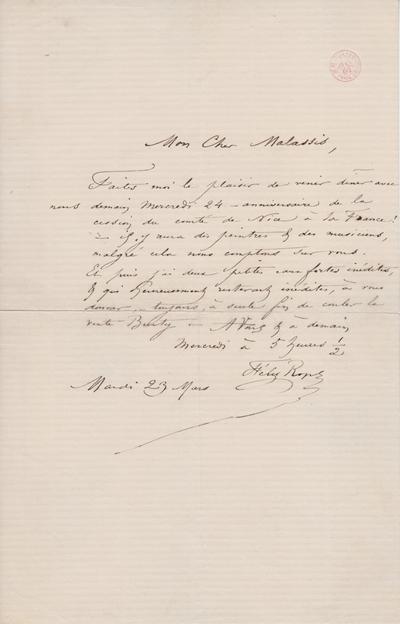 Mon Cher Malassis,
Faites moi le plaisir de venir dîner avec
nous demain Mercredi 24 – anniversaire de la
cession du comté de Nice à la France!
– il y aura des peintres & des musiciens,
malgré cela nous comptons sur vous.
Et puis j'ai deux petites eaux fortes inédites,
& qui heureusement resteront inédites, à vous
donner, – toujours, à seule fin de conter la
vente Burty – A Vous & à demain
Mercredi à 5 heures 1/2
Félicien Rops
Mardi 23 Mars